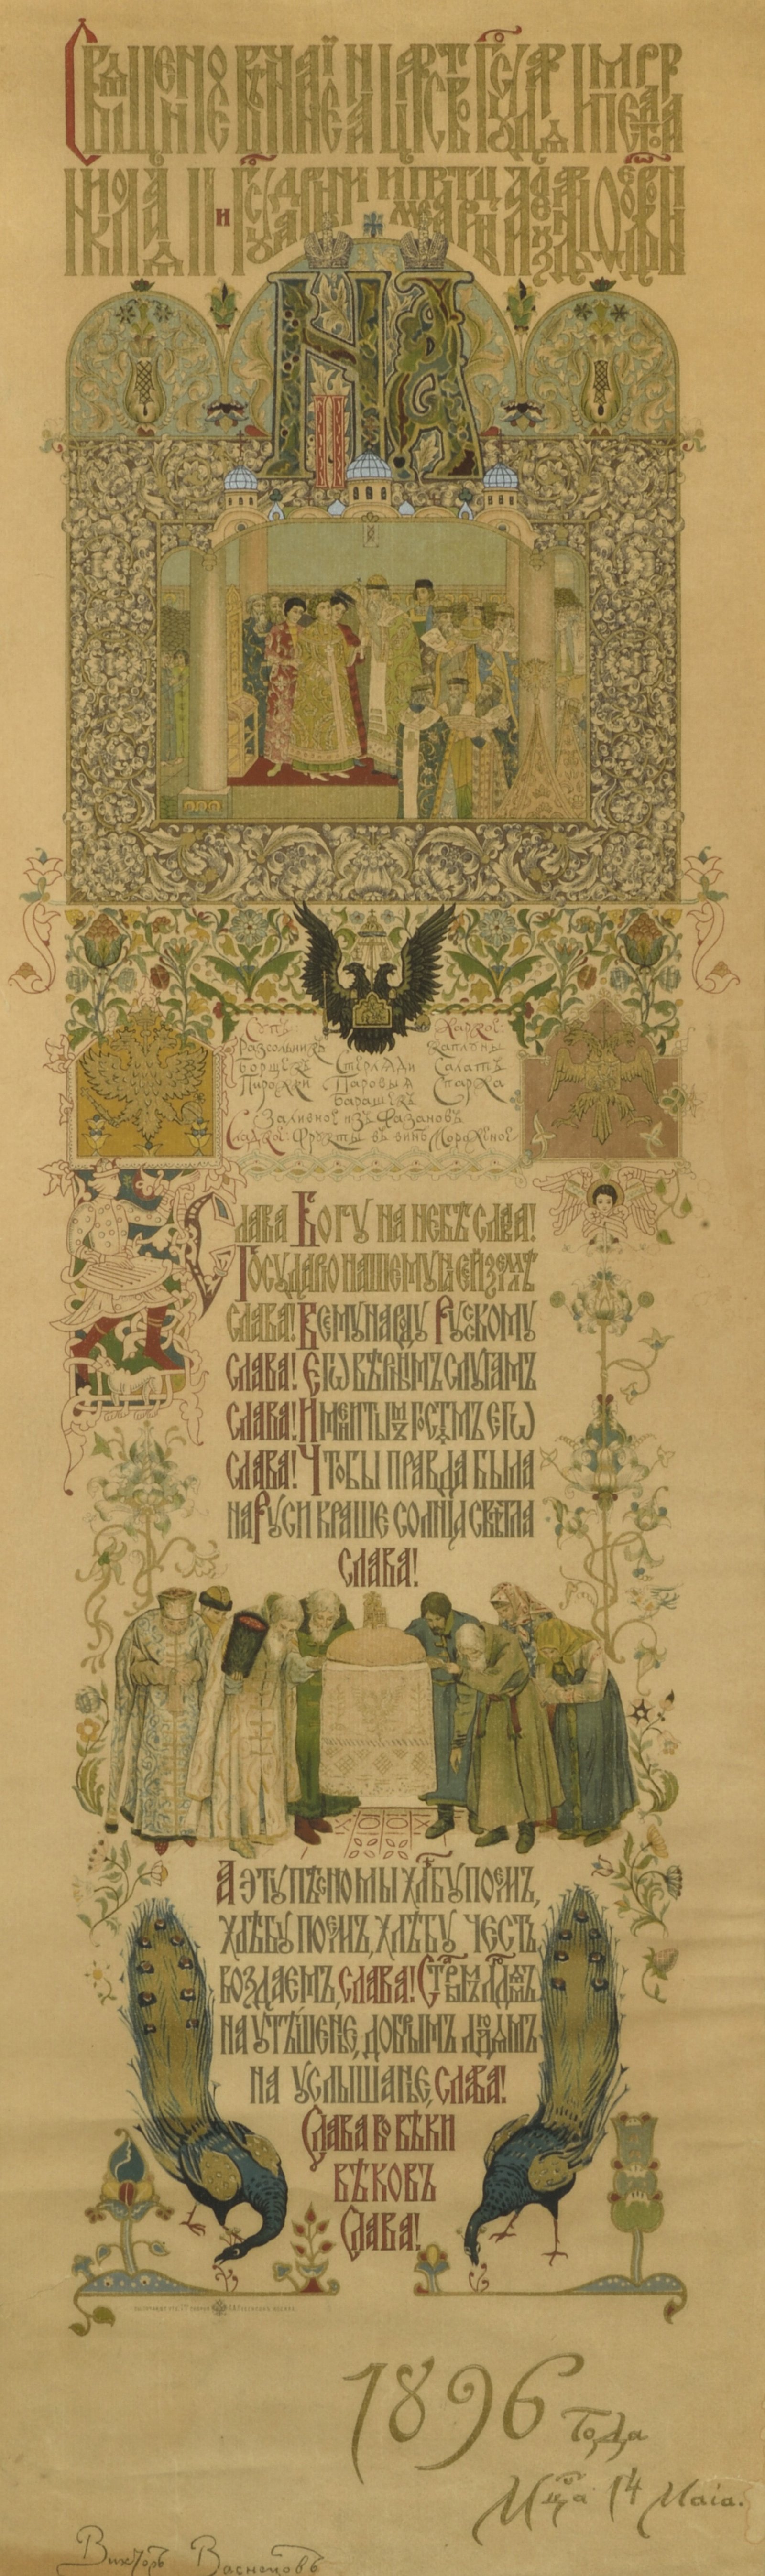 Священное Венчание на Царство Государя Императора
Николая II и Государыни Императрицы Александры Ѳеодоровны
Н II А
Супъ: Жаркое:
Разсольникъ Стерляди Каплуны
Борщокъ Паровыя Салатъ
Пирожки Барашекъ Спаржа
Заливное изъ Фазановъ
Сладкое: Фрукты въ винѣ Мороженое
Слава Богу на небѣ слава!
Государю нашему на сей землѣ
слава! Всему народу Рускому
слава! Егѡ вѣрнымъ слугамъ
слава! Именитымъ гостямъ егѡ
слава! Чтобы правда была
на Руси краше солнца свѣтла
слава!
А эту пѣсню мы хлѣбу поемъ,
хлѣбу поемъ, хлѣбу честь
воздаемъ, слава! Старымъ людямъ
на утѣшенье, добрымъ людямъ
на услышанье, слава!
Слава во вѣки
вѣковъ
Слава!
1896 Года
Мца 14 Маія.
Викторъ Васнецовъ